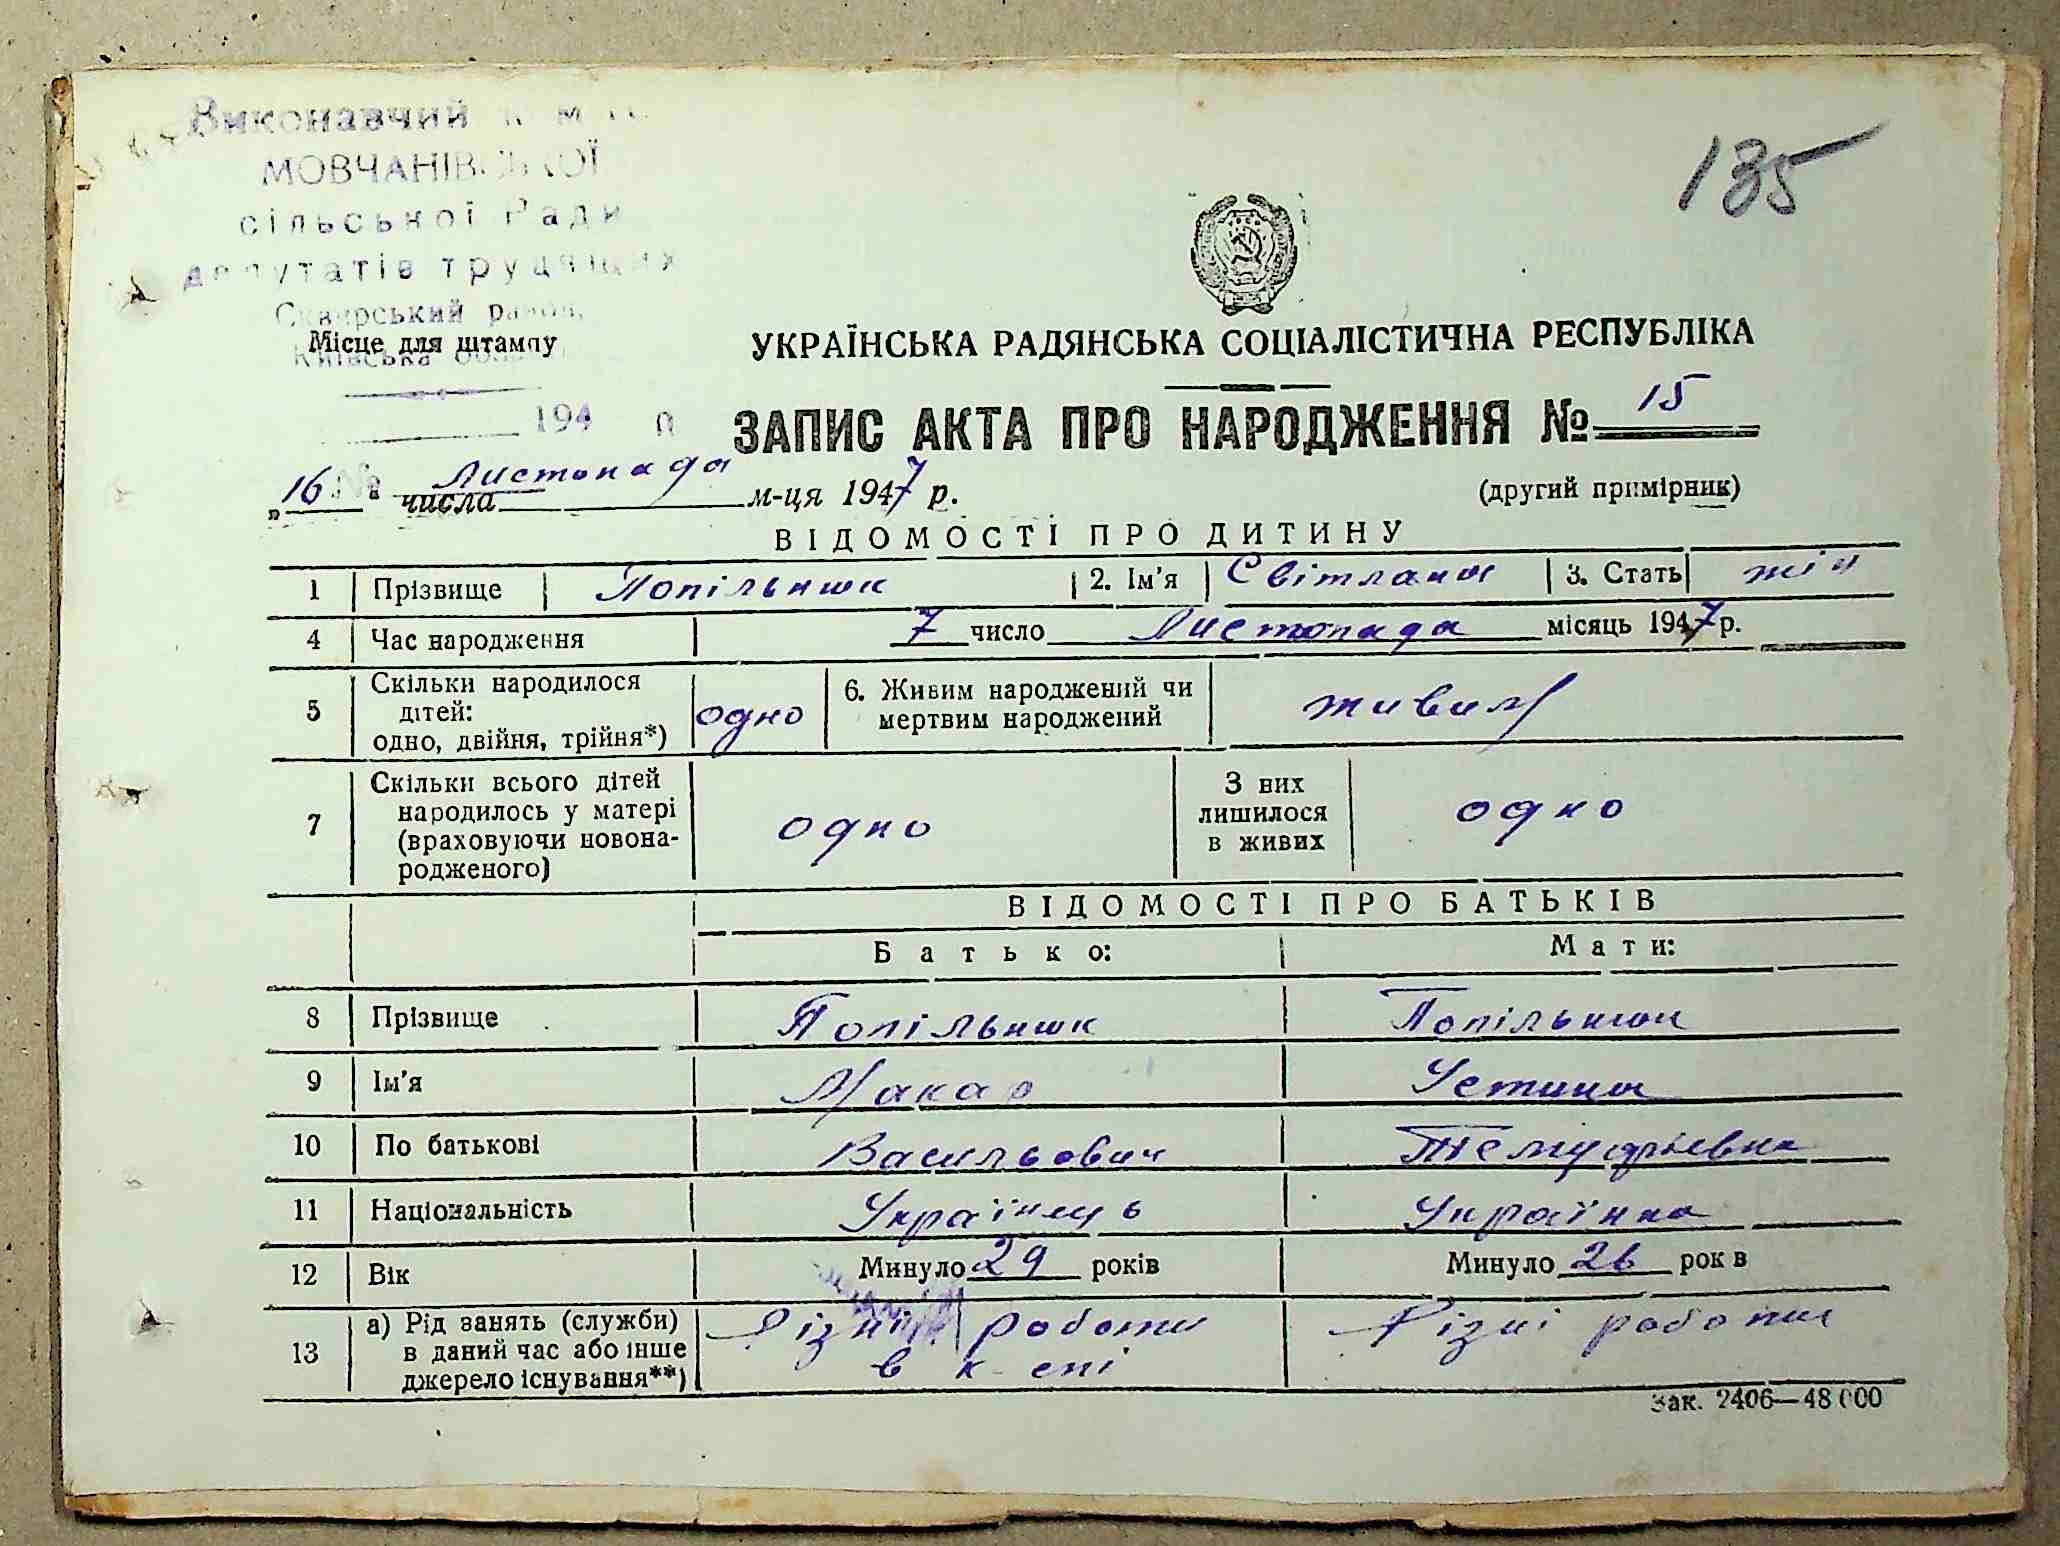 Виконавчий
МОВЧАНІВСЬКОЇ
сільської Ради
депутатів трудящих
Сквирський район,
Київська
Місце для штампу
194 р
135
УКРАЇНСЬКА РАДЯНСЬКА СОЦІАЛІСТИЧНА РЕСПУБЛІКА
ЗАПИС АКТА ПРО НАРОДЖЕННЯ № 15
„16“ числа Листопада м-ця 1947 р.
(другий примірник)
ВІДОМОСТІ ПРО ДИТИНУ
1 Прізвище Попільнюк 2. Ім'я Світлана 3. Стать жін
4 Час народження 7 число Листопада місяць 1947 р.
5 Скільки народилося дітей: одно, двійня, трійня*) одно 6. Живим народжений чи мертвим народжений живим
7 Скільки всього дітей народилось у матері (враховуючи новонародженого) одно З них лишилося в живих одно
ВІДОМОСТІ ПРО БАТЬКІВ
Батько: Мати:
8 Прізвище Попільнюк Попільнюк
9 Ім'я Макар Устина
10 По батькові Васильович
11 Національність Українець Українка
12 Вік Минуло 29 років Минуло 26 рок в
13 а) Рід занять (служби) в даний час або інше джерело існування**) Різні роботи в к-спі Різні роботи
Зак. 2406—48000